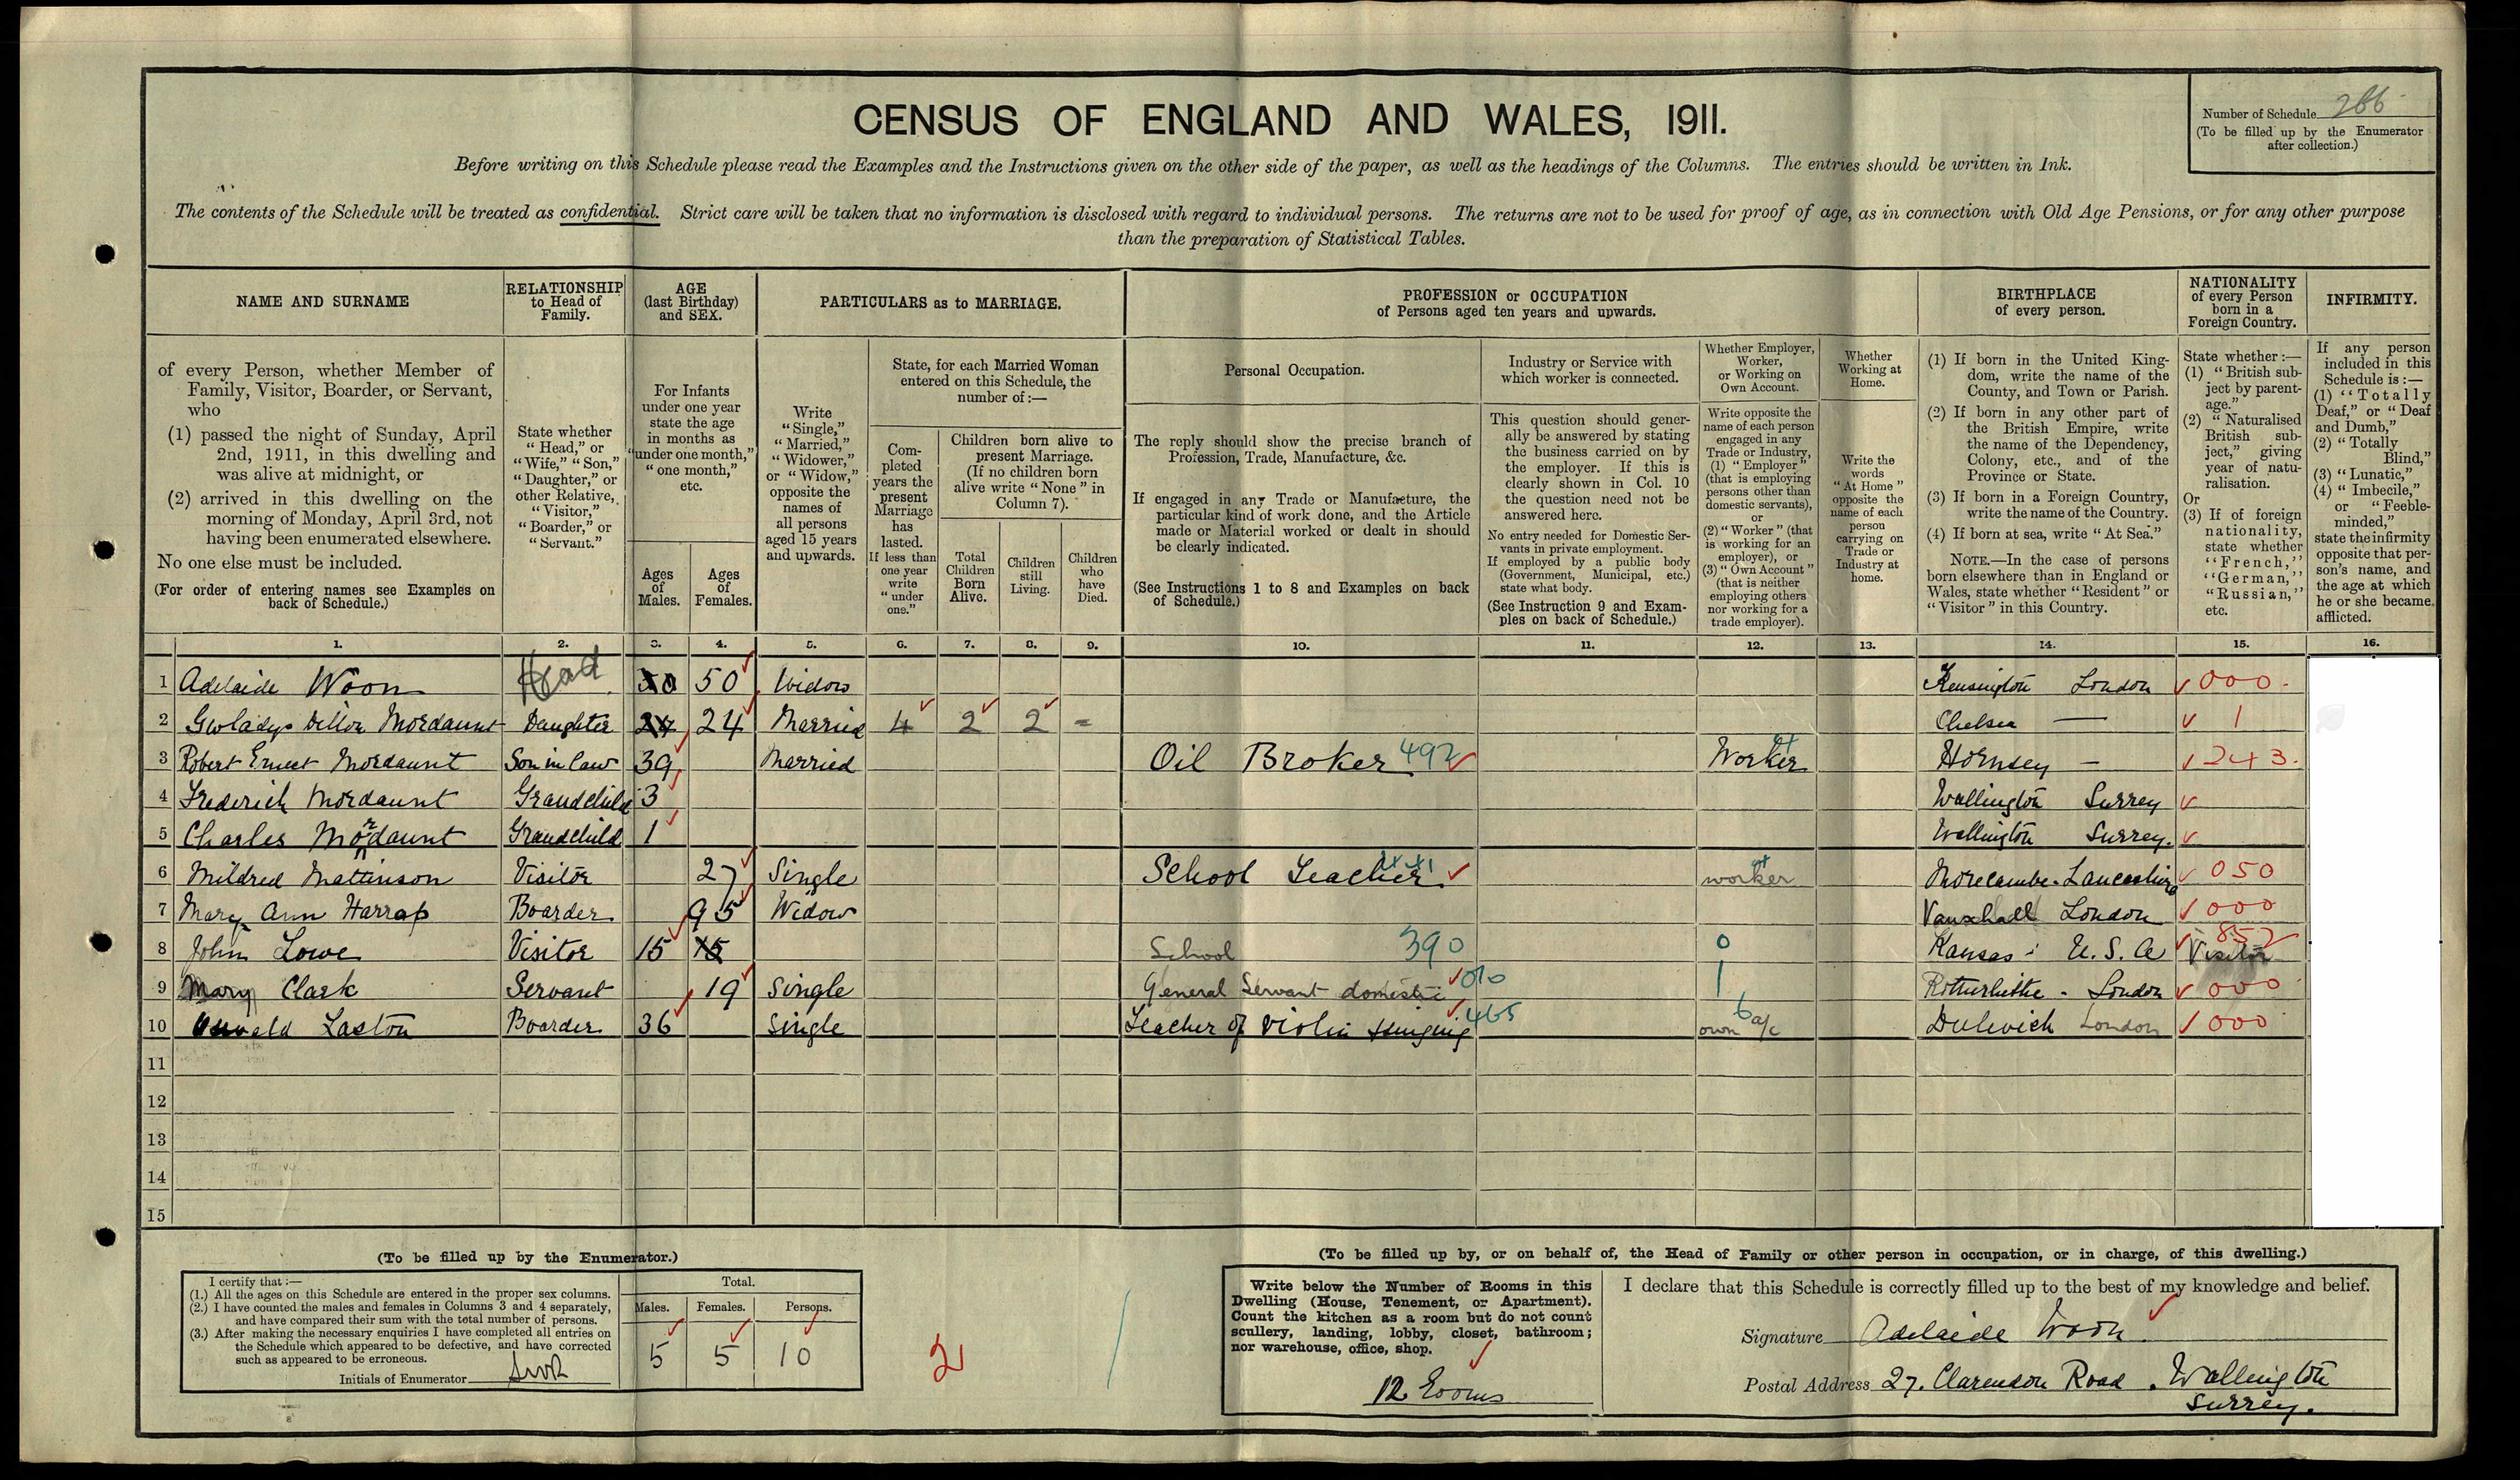 CENSUS OF ENGLAND AND WALES, 1911.
Number of Schedule 266
(To be filled up by the Enumerator
after collection.)
Before writing on this Schedule please read the Examples and the Instructions given on the other side of the paper, as well as the headings of the Columns. The entries should be written in Ink.
The contents of the Schedule will be treated as confidential. Strict care will be taken that no information is disclosed with regard to individual persons. The returns are not to be used for proof of age, as in connection with Old Age Pensions, or for any other purpose
than the preparation of Statistical Tables.
NAME AND SURNAME
of every Person, whether Member of
Family, Visitor, Boarder, or Servant,
who
(1) passed the night of Sunday, April
2nd, 1911, in this dwelling and
was alive at midnight, or
(2) arrived in this dwelling on the
morning of Monday, April 3rd, not
having been enumerated elsewhere.
No one else must be included.
(For order of entering names see Examples on
back of Schedule.)
RELATIONSHIP
to Head of
Family.
State whether
"Head," or
"Wife," "Son,"
"Daughter," or
other Relative,
"Visitor,"
"Boarder," or
"Servant."
AGE
(last Birthday)
and SEX.
For Infants
under one year
state the age
in months as
"under one month,"
"one month,"
etc.
Ages
of
Males.
Ages
of
Females.
PARTICULARS as to MARRIAGE.
Write
"Single,"
"Married,"
"Widower,"
or "Widow,"
opposite the
names of
all persons
aged 15 years
and upwards.
State, for each Married Woman
entered on this Schedule, the
number of:—
Com-
pleted
years the
present
Marriage
has
lasted.
If less than
one year
write
"under
one."
Children born alive to
present Marriage.
(If no children born
alive write "None" in
Column 7).
Total
Children
Born
Alive.
Children
still
Living.
Children
who
have
Died.
PROFESSION or OCCUPATION
of Persons aged ten years and upwards.
Personal Occupation.
The reply should show the precise branch of
Profession, Trade, Manufacture, &c.
If engaged in any Trade or Manufacture, the
particular kind of work done, and the Article
made or Material worked or dealt in should
be clearly indicated.
(See Instructions 1 to 8 and Examples on back
of Schedule.)
Industry or Service with
which worker is connected.
This question should gener-
ally be answered by stating
the business carried on by
the employer. If this is
clearly shown in Col. 10
the question need not be
answered here.
No entry needed for Domestic Ser-
vants in private employment.
If employed by a public body
(Government, Municipal, etc.)
state what body.
(See Instruction 9 and Exam-
ples on back of Schedule.)
Whether Employer,
Worker,
or Working on
Own Account.
Write opposite the
name of each person
engaged in any
Trade or Industry,
(1) "Employer"
(that is employing
persons other than
domestic servants),
or
(2) "Worker" (that
is working for an
employer), or
(3) "Own Account"
(that is neither
employing others
nor working for a
trade employer).
Whether
Working at
Home.
Write the
words
"At Home"
opposite the
name of each
person
carrying on
Trade or
Industry at
home.
BIRTHPLACE
of every person.
(1) If born in the United King-
dom, write the name of the
County, and Town or Parish.
(2) If born in any other part of
the British Empire, write
the name of the Dependency,
Colony, etc., and of the
Province or State.
(3) If born in a Foreign Country,
write the name of the Country.
(4) If born at sea, write "At Sea."
NOTE.—In the case of persons
born elsewhere than in England or
Wales, state whether "Resident" or
"Visitor" in this Country.
NATIONALITY
of every Person
born in a
Foreign Country.
State whether:—
(1) "British sub-
ject by parent-
age."
(2) "Naturalised
British sub-
ject," giving
year of natu-
ralisation.
Or
(3) If of foreign
nationality,
state whether
"French,"
"German,"
"Russian,"
etc.
INFIRMITY.
If any person
included in this
Schedule is:—
(1) "Totally
Deaf," or "Deaf
and Dumb,"
(2) "Totally
Blind,"
(3) "Lunatic,"
(4) "Imbecile,"
or "Feeble-
minded,"
state the infirmity
opposite that per-
son's name, and
the age at which
he or she became
afflicted.
1. 2. 3. 4. 5. 6. 7. 8. 9. 10. 11. 12. 13. 14. 15. 16.
1 Adelaide Woon Head 50 50 Widow Kensington London 000
2 Gwladys Dillon Mordaunt Daughter 24 24 Married 4 2 2 - Chelsea — 1
3 Robert Ernest Mordaunt Son in law 39 Married Oil Broker 492 Worker Hornsey — 243
4 Frederick Mordaunt Grandchild 3 Wallington Surrey
5 Charles Mordaunt Grandchild 1 Wallington Surrey.
6 Mildred Mattinson Visitor 27 Single School Teacher worker Morecambe. Lancashire 050
7 Mary Ann Harrap Boarder 95 Widow Vauxhall London 000
8 John Lowe Visitor 15 15 School 390 0 Kansas U.S.A Visitor 852
9 Mary Clark Servant 19 Single General Servant domestic 010 1 Rotherhithe - London 000
10 Laston Boarder 36 Single Teacher of Violin Singing 465 6 own a/c Dulwich London 000
11
12
13
14
15
(To be filled up by the Enumerator.)
I certify that:—
(1.) All the ages on this Schedule are entered in the proper sex columns.
(2.) I have counted the males and females in Columns 3 and 4 separately,
and have compared their sum with the total number of persons.
(3.) After making the necessary enquiries I have completed all entries on
the Schedule which appeared to be defective, and have corrected
such as appeared to be erroneous.
Initials of Enumerator
Total.
Males. Females. Persons.
5 5 10
2
(To be filled up by, or on behalf of, the Head of Family or other person in occupation, or in charge, of this dwelling.)
Write below the Number of Rooms in this
Dwelling (House, Tenement, or Apartment).
Count the kitchen as a room but do not count
scullery, landing, lobby, closet, bathroom;
nor warehouse, office, shop.
12 Rooms
I declare that this Schedule is correctly filled up to the best of my knowledge and belief.
Signature Adelaide Woon.
Postal Address 27. Clarendon Road. Wallington
Surrey.